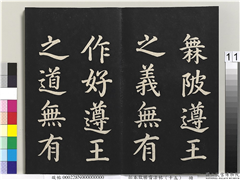 無陂遵王
之義無有
作好遵王
之道無有
11